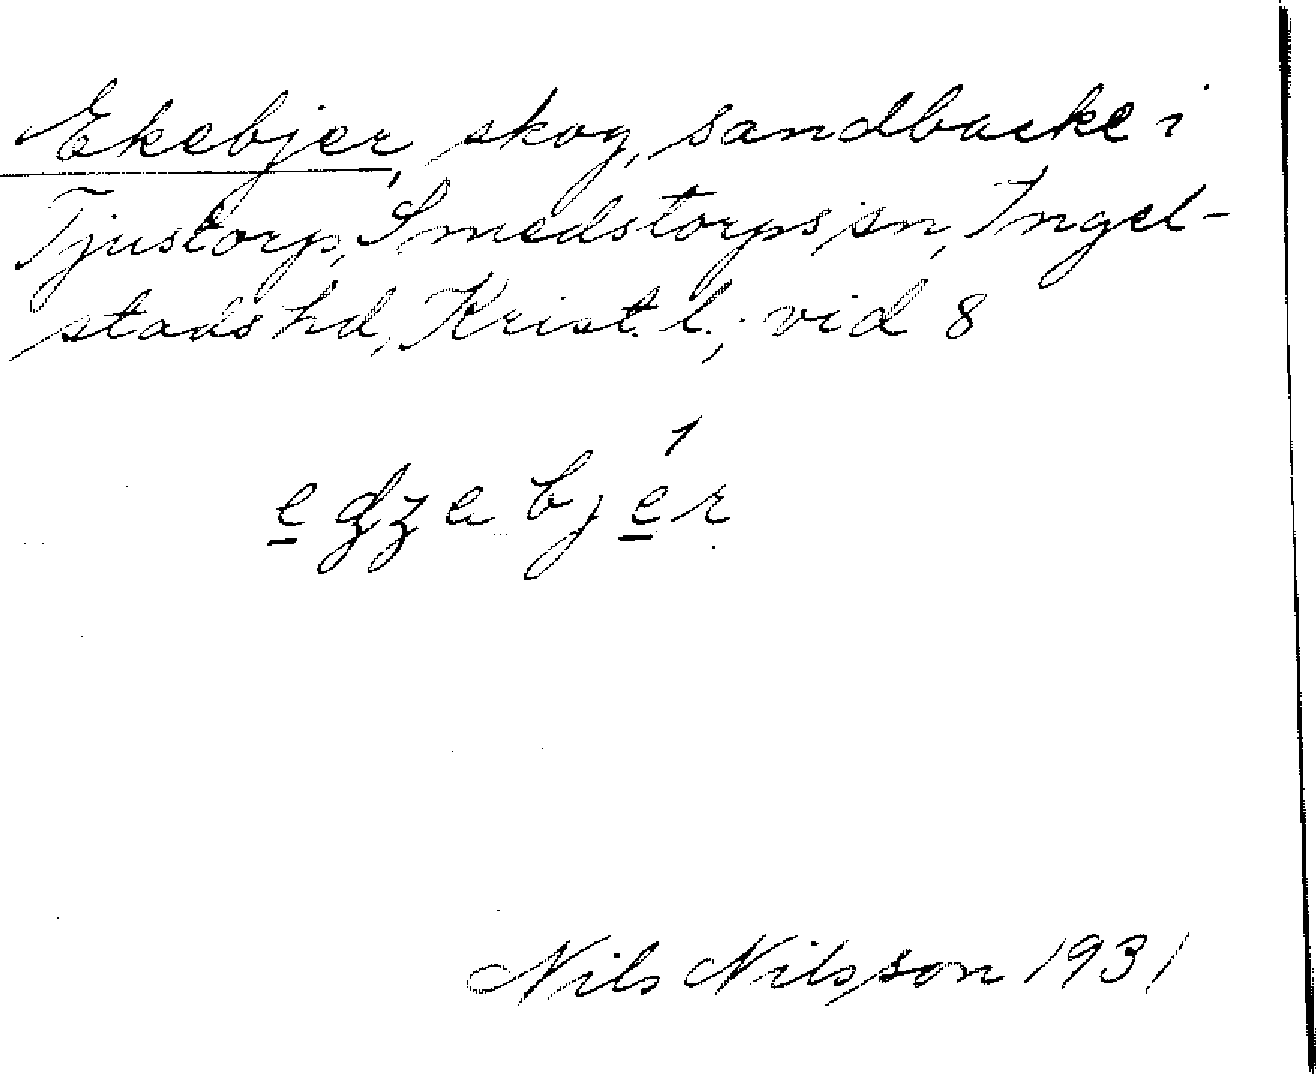 Ekebjer, skog, sandbacke i
Tjustorp, Smedstorps sn, Ingel-
stads hd, Krist. l., vid 8
Nils Nilsson 1931